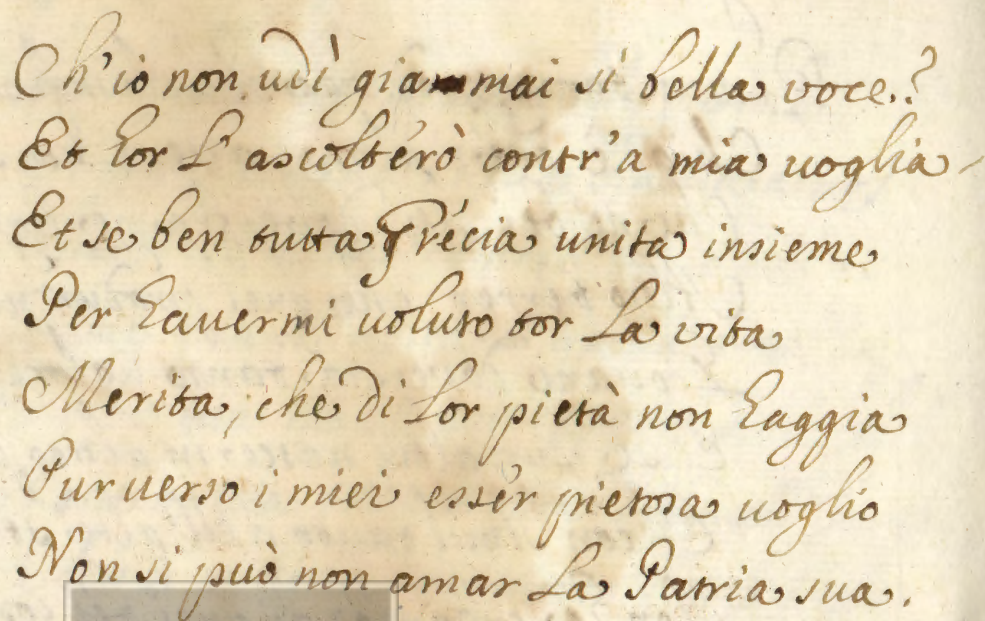 Ch'io non udì giammai sì bella voce?
Et hor l'ascolterò contr'a mia uoglia
Et se ben tutta Grecia unita insieme
Per hauermi uoluto tor la vita
Merita, che di lor pietà non haggia
Pur uerso i miei esser pietosa uoglio
Non si può non amar la Patria sua.